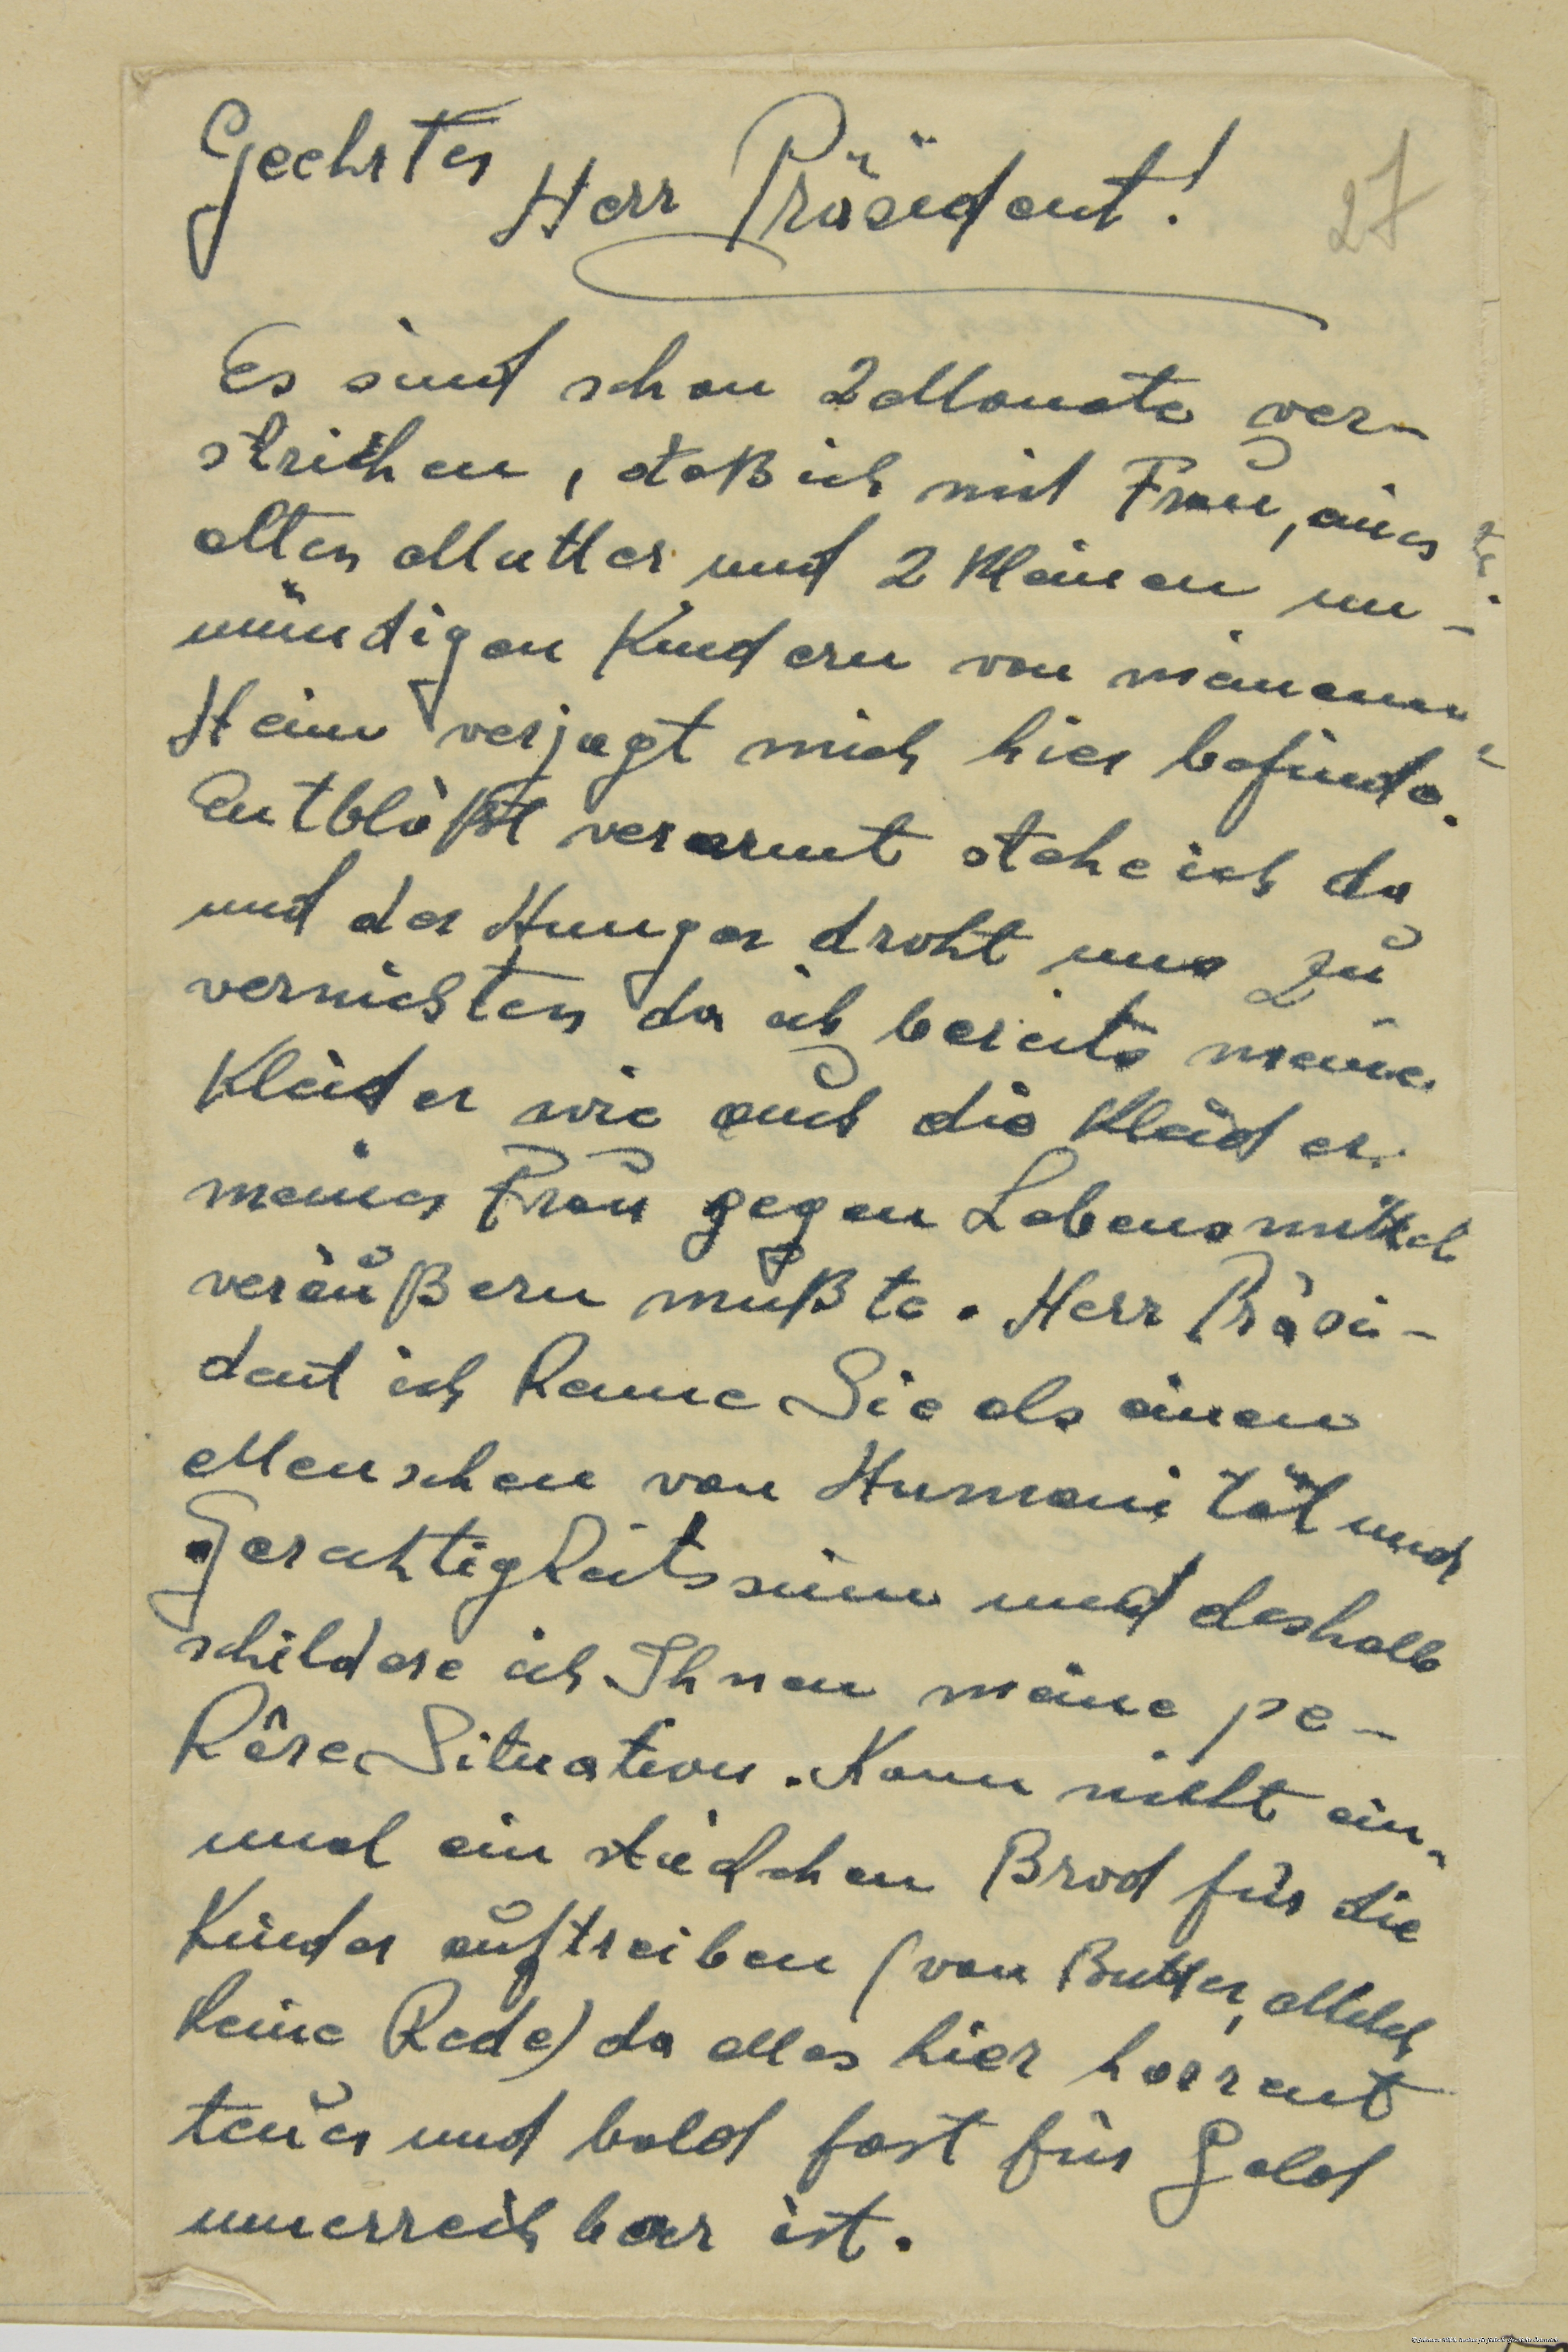 Geehrter
Herr Präsident!
27
Es sind schon 2 Monate ver-
strichen, daß ich mit Frau, einer
alten Mutter und 2 kleinen un-
mündigen Kindern von meinem
Heim verjagt mich hier befinde.
Entblößt verarmt stehe ich da
und der Hunger droht uns zu
vernichten da ich bereits meine
Kleider wie auch die Kleider
meiner Frau gegen Lebensmittel
veräußern mußte. Herr Präsi-
dent ich kenne Sie als einen
Menschen von Humanität und
Gerechtigkeitssinn und deshalb
schildere ich Ihnen meine pe-
käre Situation. Kann nicht ein-
mal ein stückchen Brod für die
Kinder auftreiben (von Butter, Milch
keine Rede) da alles hier horrent
teuer und bald fast für Geld
unerreichbar ist.